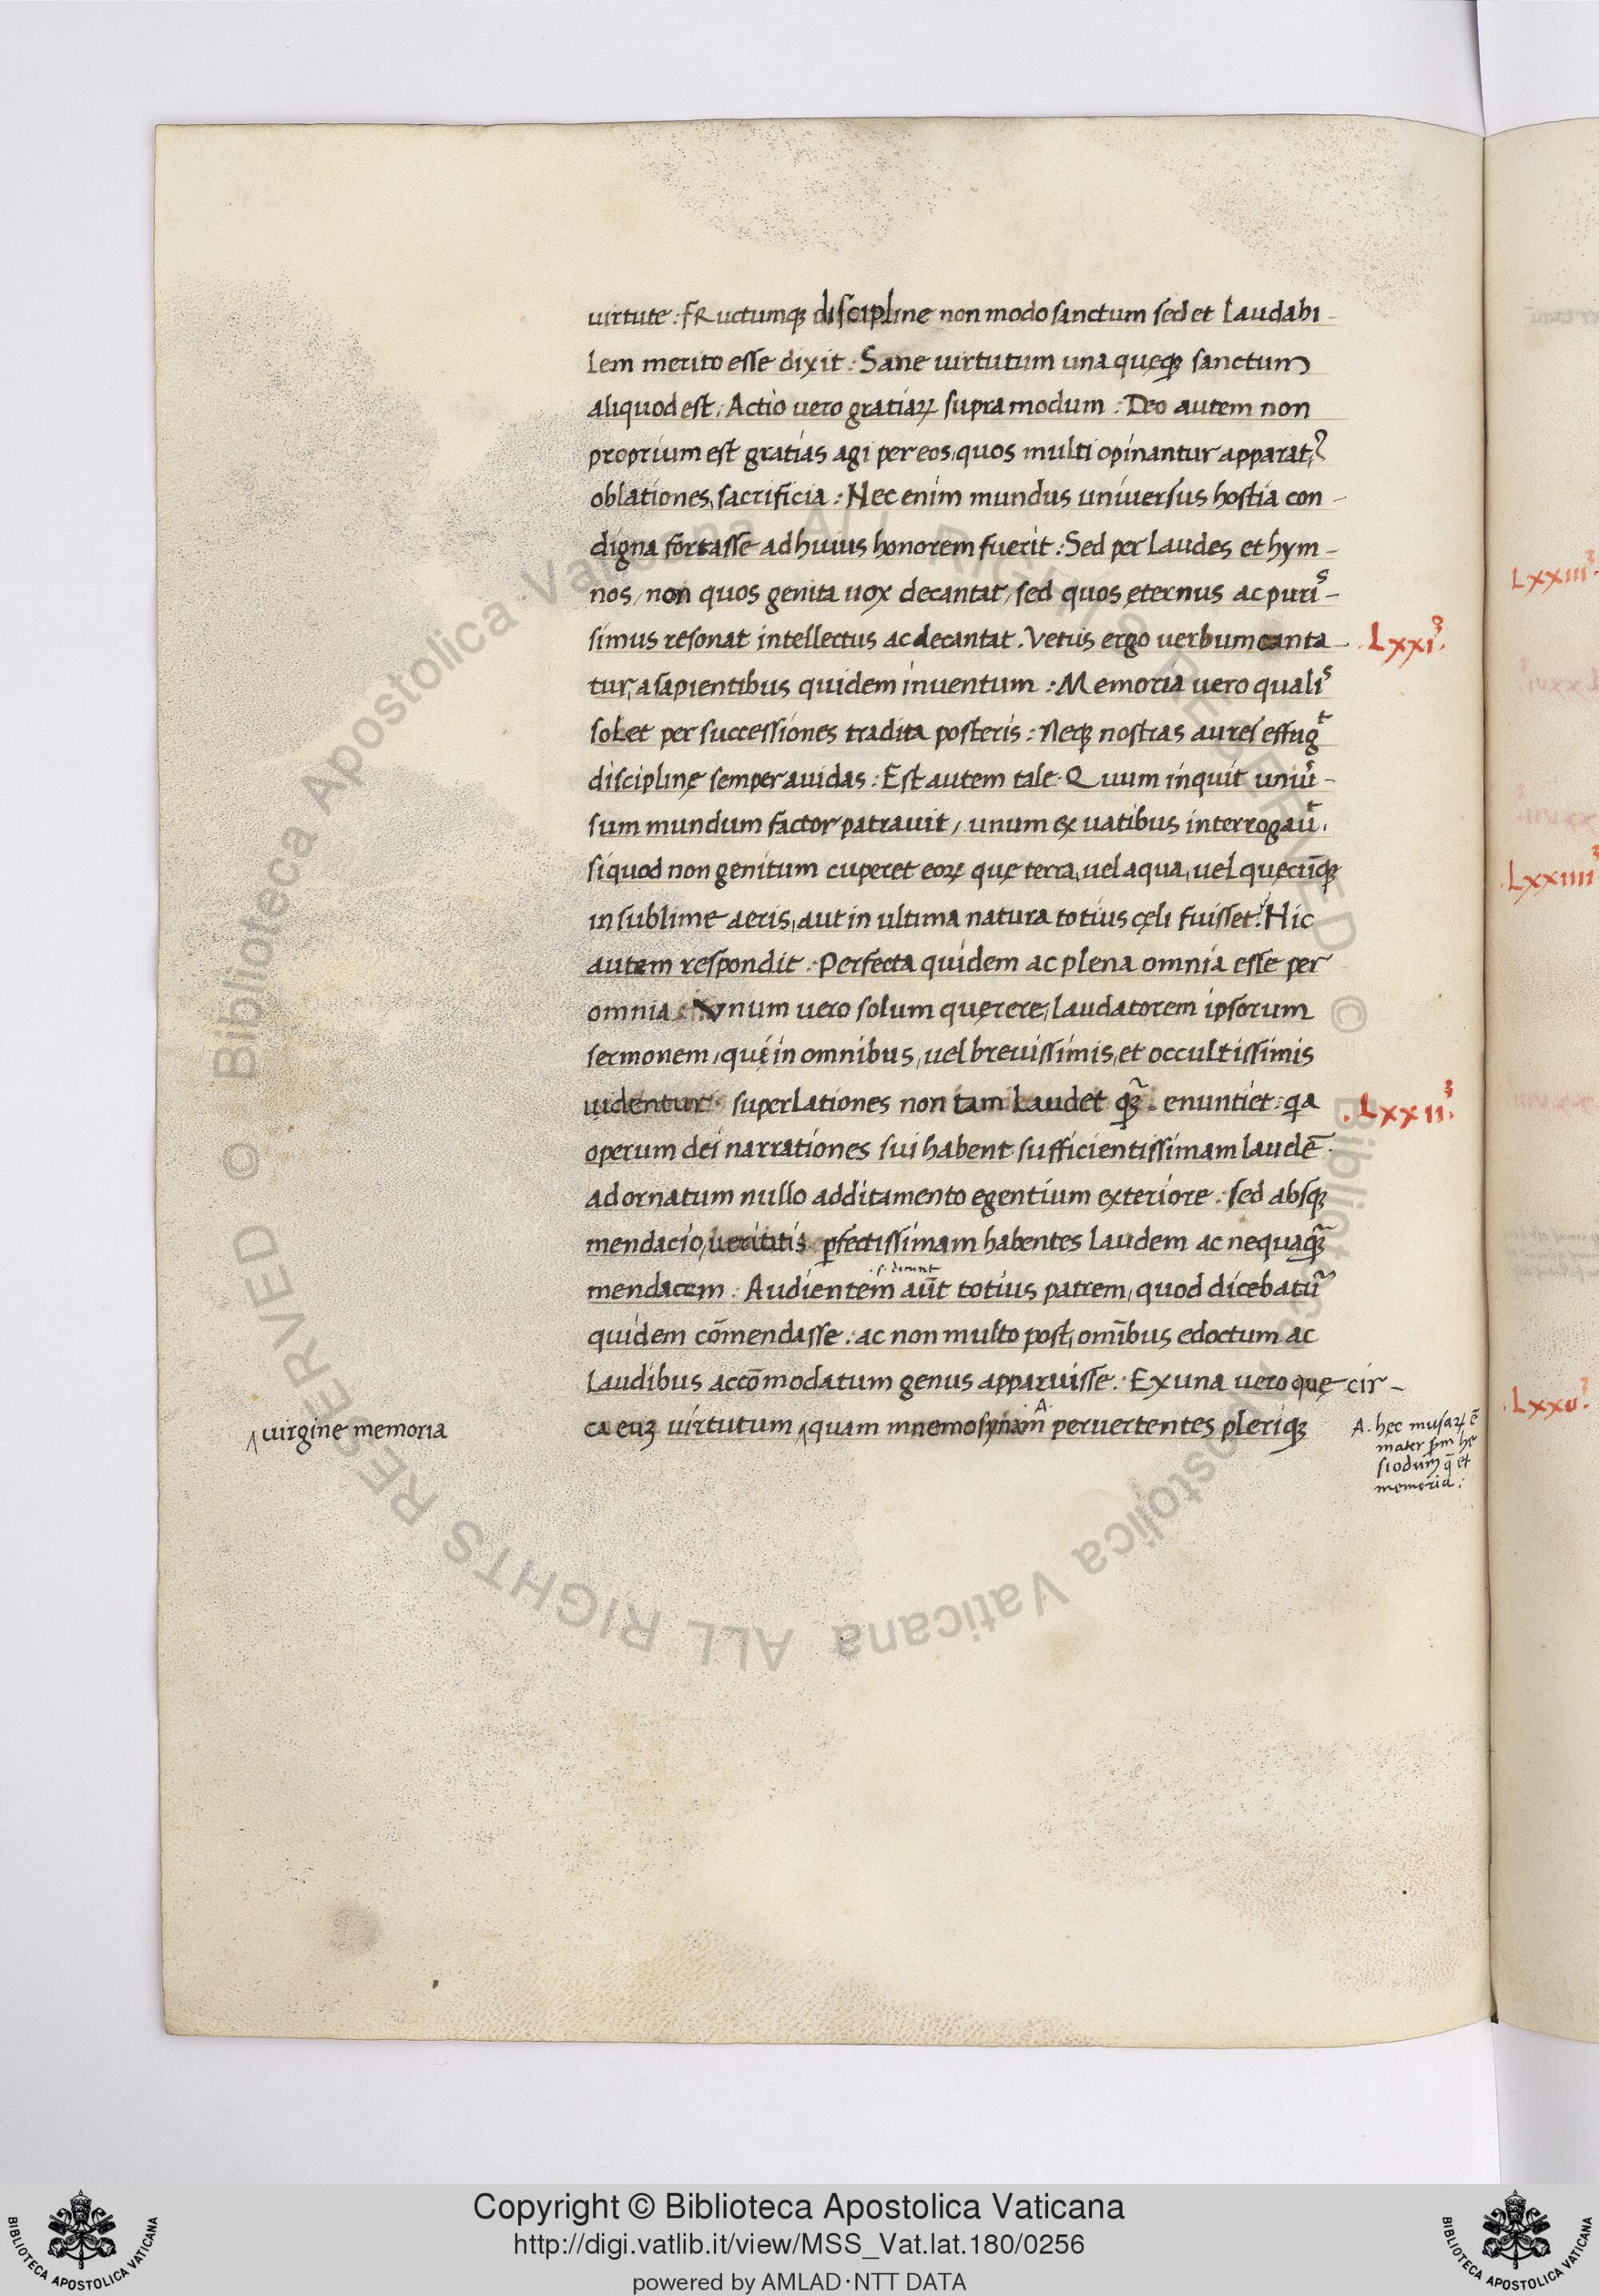 uirtute: fRuctumqꝫ discipline non modo sanctum sed et Laudabi-
lem merito esse dixit: Sane uirtutum una quęqꝫ sanctum
aliquod est: Actio uero gratiaꝝ supra modum: Deo autem non
proprium est gratias agi per eos, quos multi opinantur apparat9,
oblationes, sacrificia: Nec enim mundus uniuersus hostia con-
digna fortasse ad huius honorem fuerit: Sed per Laudes et hym-
nos, non quos genita uox decantat, sed quos ęternus ac puris-
simus resonat intellectus ac decantat. Vetus ergo uerbum canta-
tur, a sapientibus quidem inuentum: Memoria uero qualis
solet per successiones tradita posteris: Neqꝫ nostras aures effugt
disciplinę semper auidas: Est autem tale. Quum inquit uniũ-
sum mundum factor patrauit, unum ex uatibus interrogaut̃.
siquod non genitum cuperet eoꝝ quę terra, uel aqua, uel quęcũqꝫ
in sublime aeris, aut in ultima natura totius cęli fuisset? Hic
autem respondit: Perfecta quidem ac plena omnia esse per
omnia Vnum uero solum quęrere, laudatorem ipsorum
sermonem, qui in omnibus, uel breuissimis, et occultissimis
uidentur superlationes non tam Laudet qꝫ̃ enuntiet: qa
operum dei narrationes sui habent sufficientissimam laudē.
ad ornatum nullo additamento egentium exteriore: sed absqꝫ
mendacio, ueritatis ꝑfectissimam habentes Laudem ac nequaqꝫ̃
mendacem: Audientem aũt totius patrem, quod dicebatũr
.s. dicunt
quidem cōmendasse: ac non multo post, omībus edoctum ac
Laudibus accōmodatum genus apparuisse: Ex una uero quę cir-
ca euꝫ uirtutum ⁁ quam mnemosynam A. peruertentes pleriqꝫ
⁁ uirgine memoria
A. hęc musaꝝ ē
mater ẜm he
siodum q̄ et
memoria:
.Lxxi3.
.Lxxii3.
Lxxiii3.
.Lxxiiii3
.Lxxu3.
Copyright © Biblioteca Apostolica Vaticana
http://digi.vatlib.it/view/MSS_Vat.lat.180/0256
powered by AMLAD·NTT DATA
BIBLIOTECA APOSTOLICA VATICANA
BIBLIOTECA APOSTOLICA VATICANA
© Biblioteca Apostolica Vaticana ALL RIGHTS RESERVED © Biblioteca Apostolica Vaticana ALL RIGHTS RESERVED